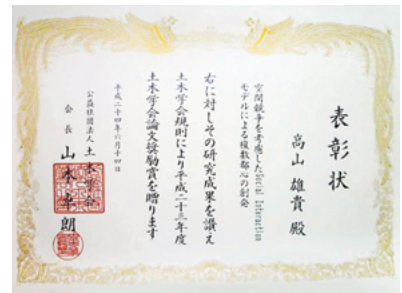 表彰状
高山 雄貴 殿
空間競争を考慮したSocial Interaction
モデルによる複数都心の創発
右に対しその研究成果を讃え
土木学会規則により平成二十三年度
土木学会論文奨励賞を贈ります
平成二十四年六月十四日
公益社団法人 土木学会
会長 山本卓朗